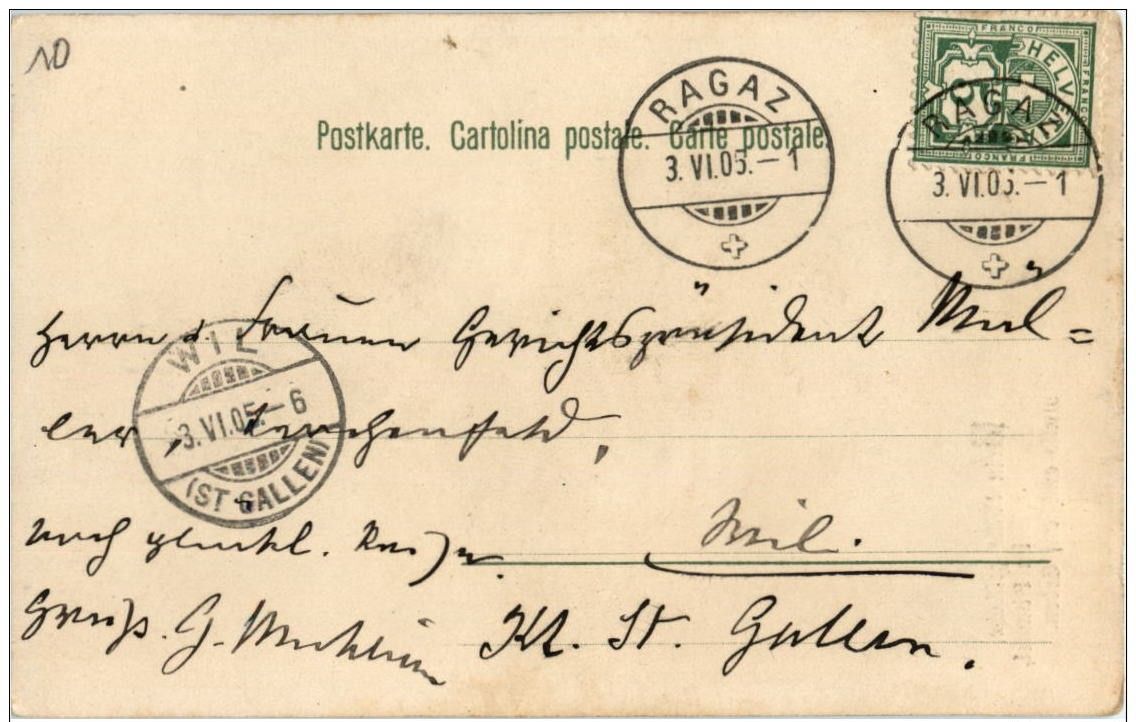 10
Postkarte. Cartolina postale. Carte postale.
RAGAZ
3. VI. 05. – 1
FRANCO
HELVETIA
RAGAZ
3. VI. 05. – 1
Herrn & Frauen Gerichtspräsident Mül=
ler, Lerchenfeld,
WIL
3. VI. 05. – 6
(ST GALLEN)
Wil.
Kt. St. Gallen.
nach glückl. Reise.
Gruß. G.